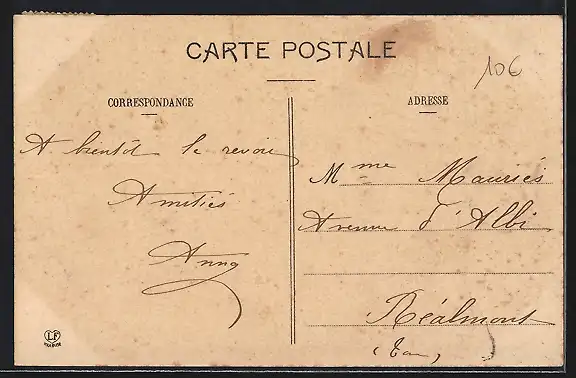 CARTE POSTALE
106
CORRESPONDANCE
ADRESSE
A bientôt le revoir
Amitiés
Anna
Mme Mauriès
Avenue d'Albi
Réalmont
(Tarn)
LF
TOULOUSE